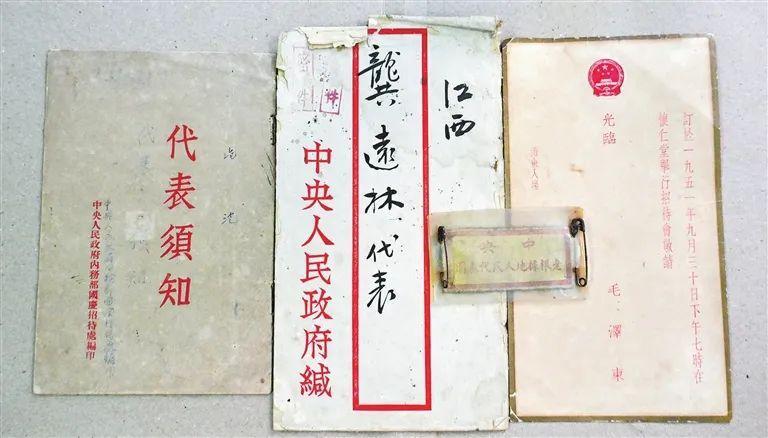 代表須知
中央人民政府内務部國慶招待處編印
江西
龔遠林代表
中央人民政府緘
件
中央
老根據地人民代表團
訂於一九五一年九月三十日下午七時在
懷仁堂舉行招待會敬請
光臨
毛澤東